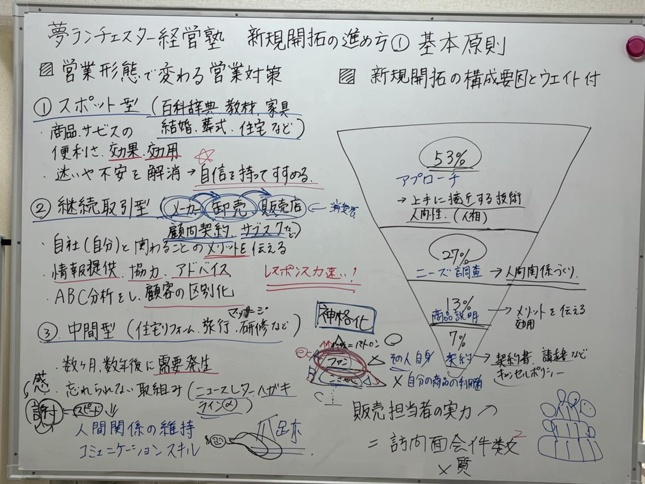 夢ランチェスター経営塾 新規開拓の進め方① 基本原則
▨ 営業形態で変わる営業対策
① スポット型 (百科辞典 教材 家具
結婚. 葬式. 住宅 など)
・商品.サービスの
便利さ. 効果. 効用
・迷いや不安を解消→自信を持ってすすめる.
② 継続取引型 メーカー 卸売 販売店
顧問契約. サブスクなど)
・自社(自分)と関わることのメリットを伝える
・情報提供. 協力. アドバイス
レスポンス力 速い!
・ABC分析をし. 顧客の区別化
③ 中間型 (住宅リフォーム. 旅行. 研修など)
・数ヶ月.数年後に需要発生
・忘れられない取組み(ニュースレター ハガキ
感
謝
付
=スピード
人間関係の維持
コミュニケーションスキル
▨ 新規開拓の構成要因とウエイト付
53%
アプローチ
→上手に接近する技術
人間性. (人相)
27%
ニーズ調査 →人間関係づくり.
13%
商品説明 →メリットを伝える
効用
7%
契約 →契約書. 請求 など
キャンセルポリシー
神格化
ファン
その人自身
× 自分の商品の利用価値
販売担当者の実力
= 訪問面会件数²
× 質